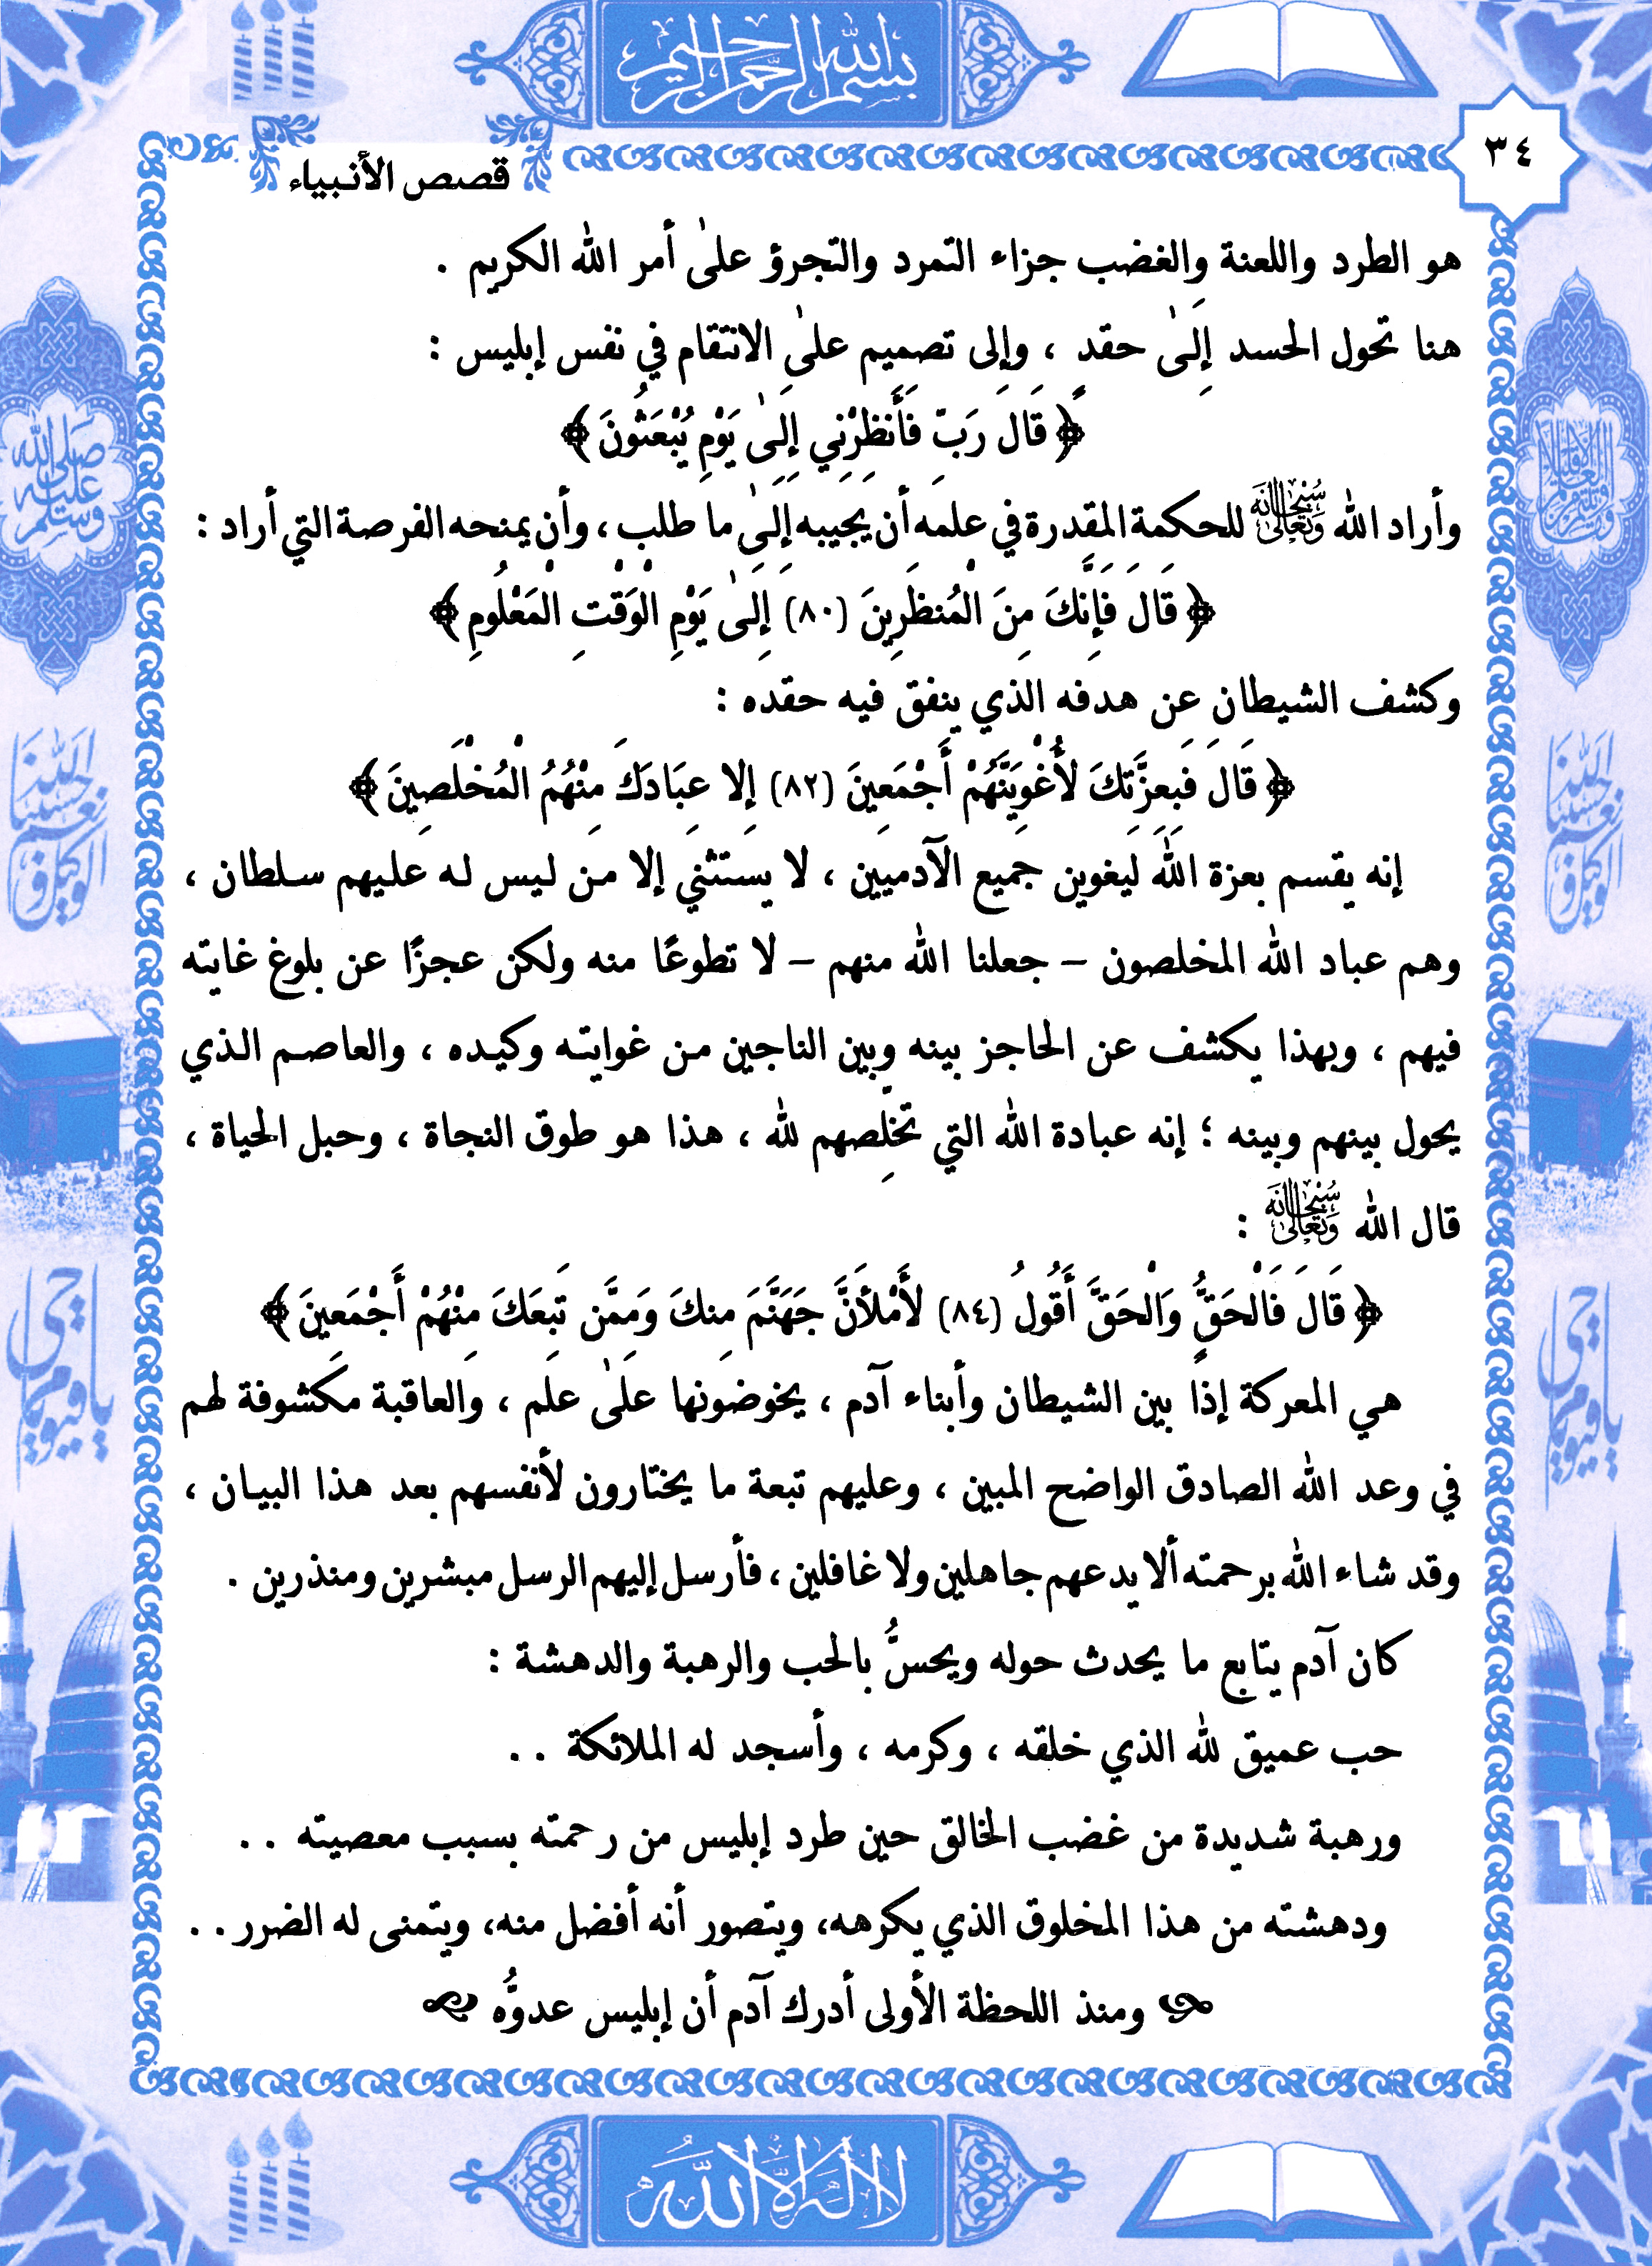 بسم الله الرحمن الرحيم
٣٤
قصص الأنبياء
هو الطرد واللعنة والغضب جزاء التمرد والتجرؤ علىٰ أمر الله الكريم .
هنا تحول الحسد إِلىٰ حقد ، وإلى تصميم علىٰ الانتقام في نفس إبليس :
﴿ قَالَ رَبِّ فَأَنظِرْنِي إِلَىٰ يَوْمِ يُبْعَثُونَ ﴾
وأراد الله سُبْحَانَهُ وَتَعَالَىٰ للحكمة المقدرة في علمه أن يجيبه إلىٰ ما طلب ، وأن يمنحه الفرصة التي أراد :
﴿ قَالَ فَإِنَّكَ مِنَ الْمُنظَرِينَ (٨٠) إِلَىٰ يَوْمِ الْوَقْتِ الْمَعْلُومِ ﴾
وكشف الشيطان عن هدفه الذي ينفق فيه حقده :
﴿ قَالَ فَبِعِزَّتِكَ لأُغْوِيَنَّهُمْ أَجْمَعِينَ (٨٢) إِلا عِبَادَكَ مِنْهُمُ الْمُخْلَصِينَ ﴾
إنه يقسم بعزة الله ليغوين جميع الآدميين ، لا يستثني إلا من ليس له عليهم سلطان ،
وهم عباد الله المخلصون – جعلنا الله منهم – لا تطوعًا منه ولكن عجزًا عن بلوغ غايته
فيهم ، وبهذا يكشف عن الحاجز بينه وبين الناجين من غوايته وكيده ، والعاصم الذي
يحول بينهم وبينه ؛ إنه عبادة الله التي تخلِّصهم لله ، هذا هو طوق النجاة ، وحبل الحياة ،
قال الله سُبْحَانَهُ وَتَعَالَىٰ :
﴿ قَالَ فَالْحَقُّ وَالْحَقَّ أَقُولُ (٨٤) لأَمْلأَنَّ جَهَنَّمَ مِنكَ وَمِمَّن تَبِعَكَ مِنْهُمْ أَجْمَعِينَ ﴾
هي المعركة إذًا بين الشيطان وأبناء آدم ، يخوضونها علىٰ علم ، والعاقبة مكشوفة لهم
في وعد الله الصادق الواضح المبين ، وعليهم تبعة ما يختارون لأنفسهم بعد هذا البيان ،
وقد شاء الله برحمته ألا يدعهم جاهلين ولا غافلين ، فأرسل إليهم الرسل مبشرين ومنذرين .
كان آدم يتابع ما يحدث حوله ويحسُّ بالحب والرهبة والدهشة :
حب عميق لله الذي خلقه ، وكرمه ، وأسجد له الملائكة . .
ورهبة شديدة من غضب الخالق حين طرد إبليس من رحمته بسبب معصيته . .
ودهشته من هذا المخلوق الذي يكرهه، ويتصور أنه أفضل منه، ويتمنى له الضرر . .
ومنذ اللحظة الأولى أدرك آدم أن إبليس عدوُّه
لا إله إلا الله